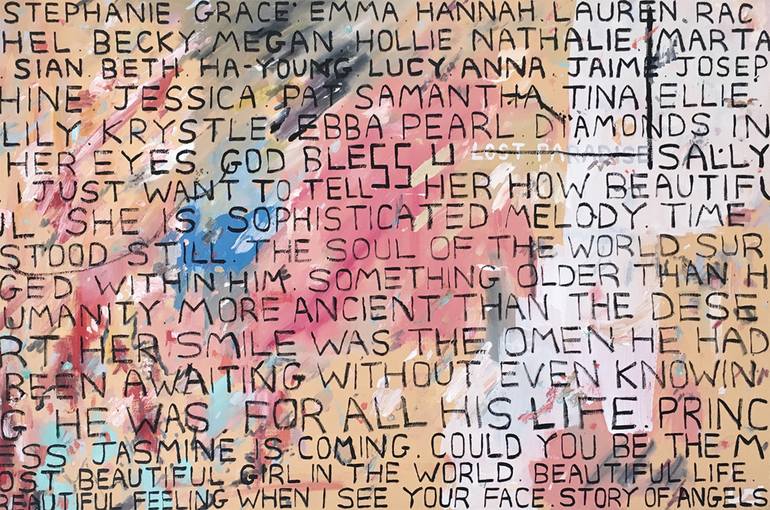 STEPHANIE GRACE EMMA HANNAH. LAUREN. RAC
HEL BECKY MEGAN HOLLIE NATHALIE. MARTA
SIAN BETH HA-YOUNG LUCY ANNA JAIME JOSEP
HINE JESSICA PAT SAMANTHA TINA ELLIE.
LILY KRYSTLE. EBBA PEARL DIAMONDS IN
HER EYES GOD BLESS U LOST PARADISE SALLY
I JUST WANT TO TELL HER HOW BEAUTIFU
UL SHE IS SOPHISTICATED MELODY TIME
STOOD STILL THE SOUL OF THE WORLD SUR
GED WITHIN HIM. SOMETHING OLDER THAN H
UMANITY MORE ANCIENT THAN THE DESE
RT HER SMILE WAS THE OMEN HE HAD
BEEN AWAITING WITHOUT EVEN KNOWIN
G HE WAS FOR ALL HIS LIFE PRINC
ESS JASMINE IS COMING. COULD YOU BE THE M
OST BEAUTIFUL GIRL IN THE WORLD. BEAUTIFUL LIFE.
BEAUTIFUL FEELING WHEN I SEE YOUR FACE. STORY OF ANGELS